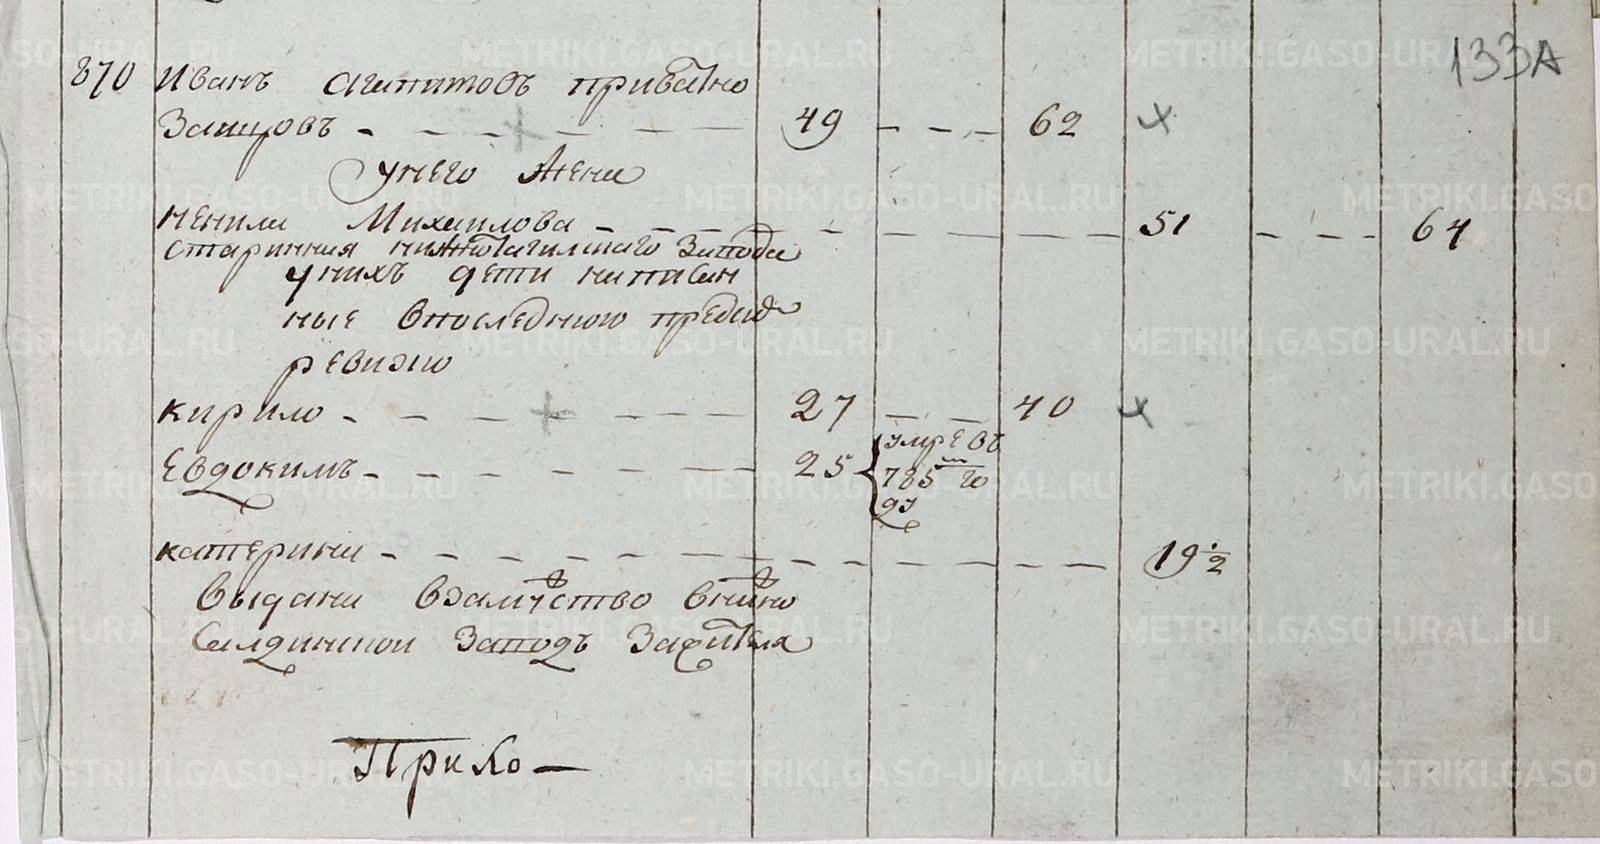 133А
870 Иванъ Агапитовъ приватно
Зацировъ - - - - 49 - - - 62
у него жена
Ненила Михаилова - - - - 51 - - - 64
старинная нижнотагилскаго завода
у нихъ дети написан
ные в последнюю пред
ревизию
кирило - - - - 27 - - 40
Евдокимъ - - - - 25 умре въ
785 м го
ду
катерина - - - - 19 1/2
выдана в замужство в нижно
салдинской заводъ за жителя
Прибо-